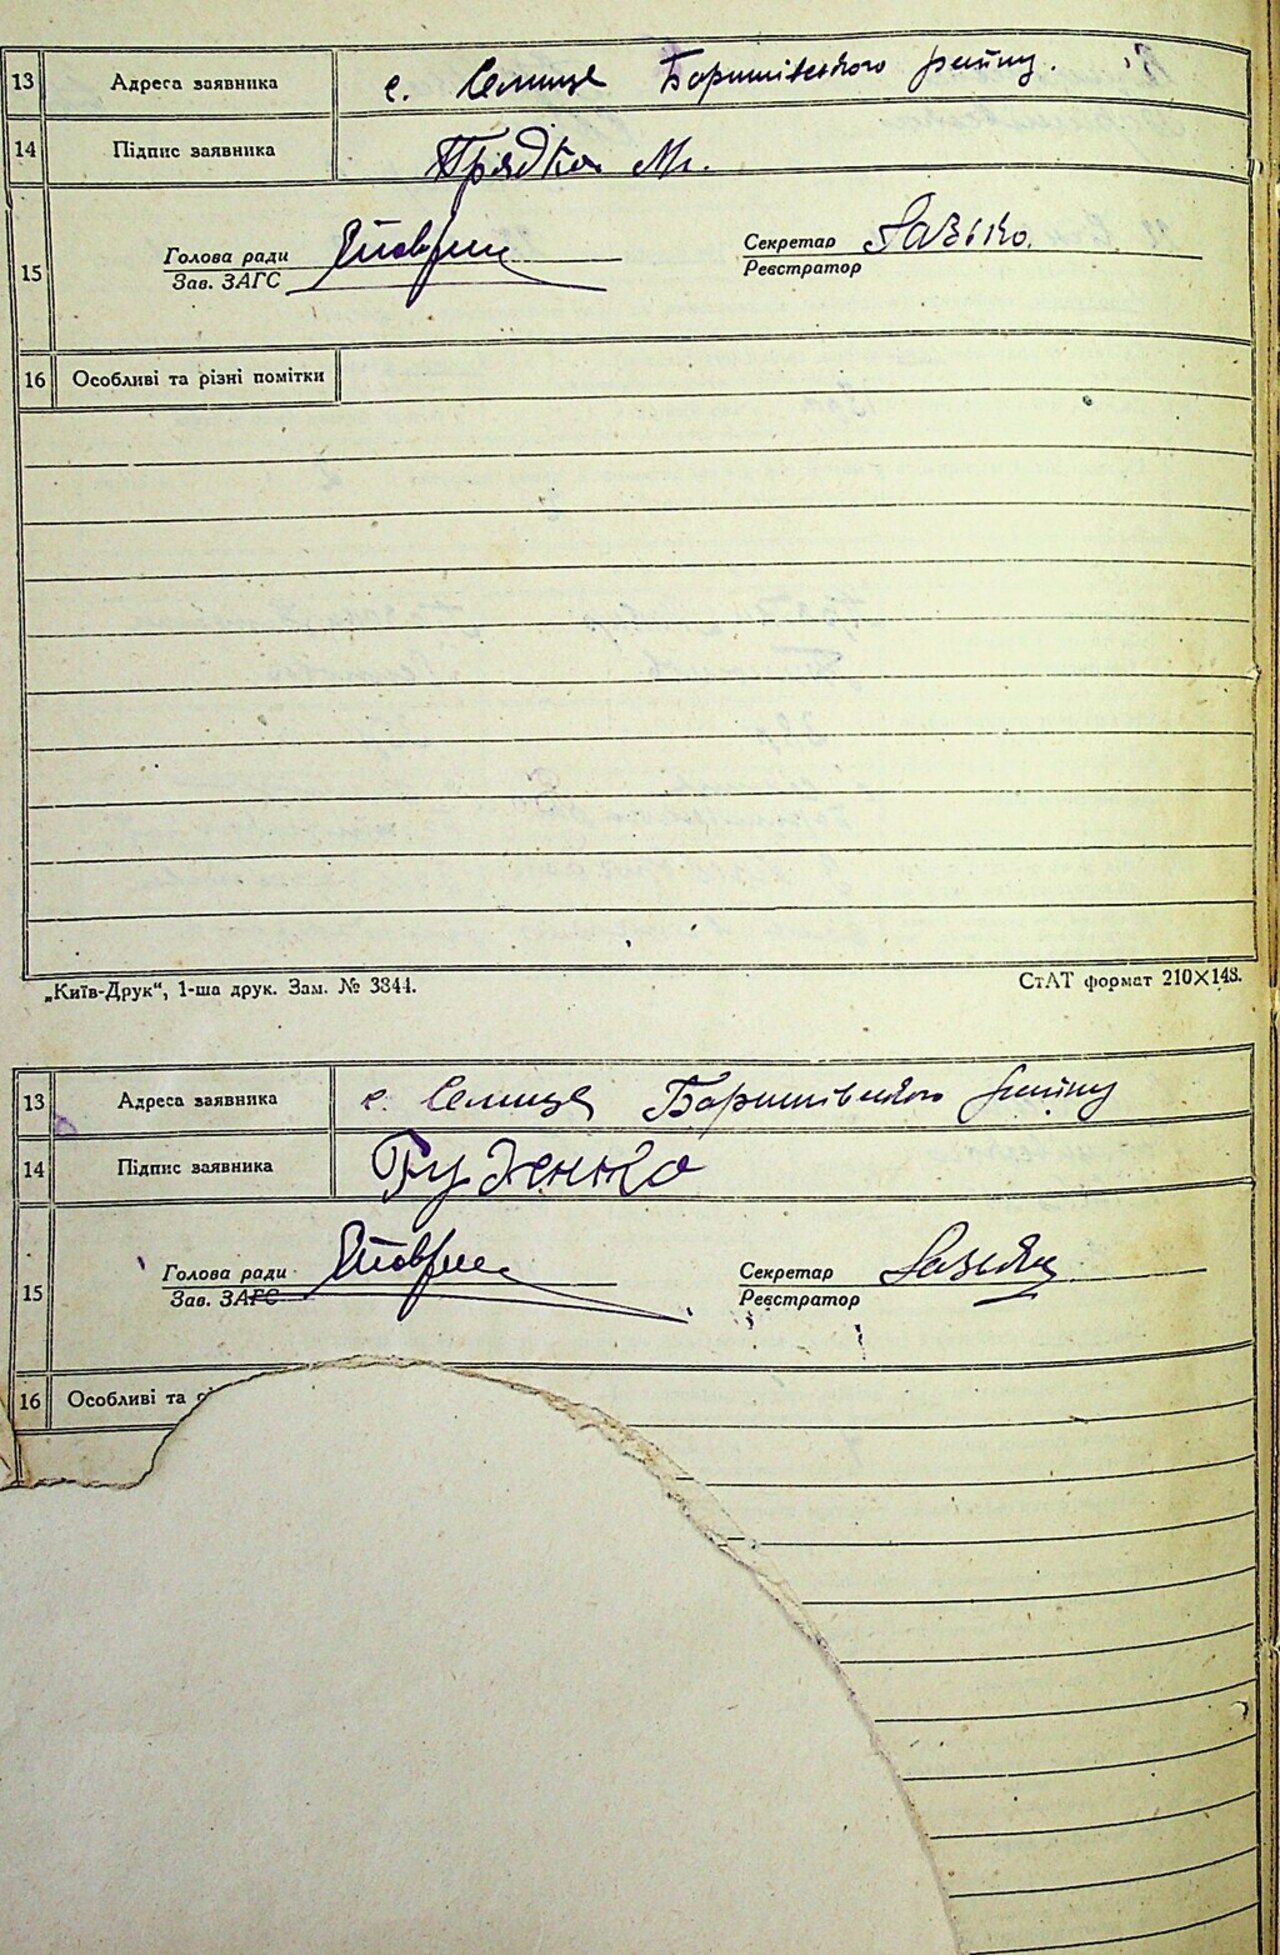 13 Адреса заявника с. Селище Баришівського району.
14 Підпис заявника Прядка М.
15 Голова ради Секретар
Зав. ЗАГС Реєстратор
16 Особливі та різні помітки
„Київ-Друк“, 1-ша друк. Зам. № 3344. СтАТ формат 210×148.
13 Адреса заявника с. Селище Баришівського району
14 Підпис заявника Гуженко
15 Голова ради Секретар
Зав. ЗАГС Реєстратор
16 Особливі та